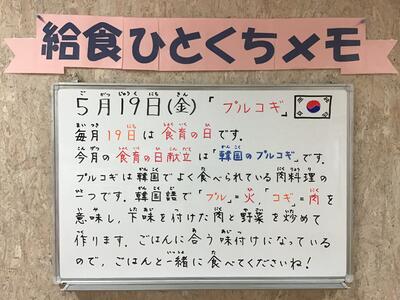 給食ひとくちメモ
5月19日(金)「プルコギ」
毎月19日は食育の日です。
今月の食育の日献立は「韓国のプルコギ」です。
プルコギは韓国でよく食べられている肉料理の
一つです。韓国語で「プル」=火、「コギ」=肉を
意味し、下味を付けた肉と野菜を炒めて
作ります。ごはんに合う味付けになっている
ので、ごはんと一緒に食べてくださいね!